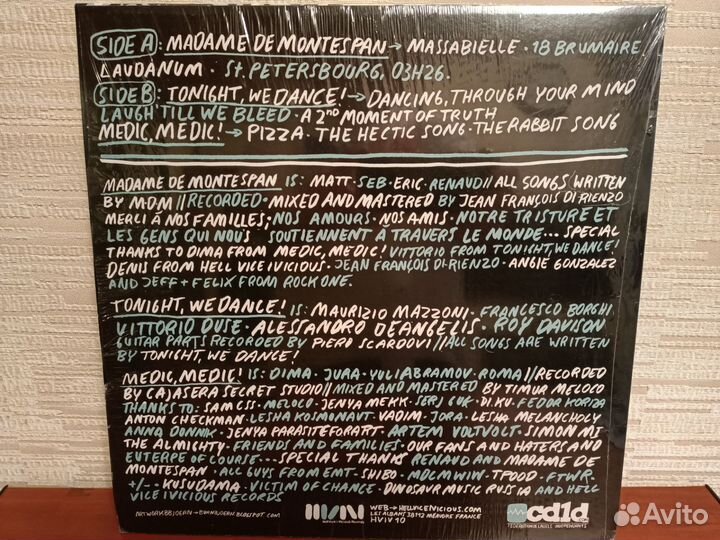 SIDE A: MADAME DE MONTESPAN → MASSABIELLE · 18 BRUMAIRE
LAUDANUM · St. PETERSBOURG, 03H26.
SIDE B: TONIGHT, WE DANCE! → DANCING, THROUGH YOUR MIND
LAUGH 'TILL WE BLEED · A 2ND MOMENT OF TRUTH
MEDIC, MEDIC! → PIZZA · THE HECTIC SONG · THE RABBIT SONG
MADAME DE MONTESPAN IS: MATT · SEB · ERIC · RENAUD // ALL SONGS WRITTEN
BY MDM // RECORDED · MIXED AND MASTERED BY JEAN FRANÇOIS DI RIENZO
MERCI À NOS FAMILLES; NOS AMOURS · NOS AMIS · NOTRE TRISTURE ET
LES GENS QUI NOUS SOUTIENNENT À TRAVERS LE MONDE... SPECIAL
THANKS TO DIMA FROM MEDIC, MEDIC! VITTORIO FROM TONIGHT, WE DANCE!
DENIS FROM HELL VICE IVICIOUS · JEAN FRANÇOIS DI RIENZO · ANGIE GONZALEZ
AND JEFF + FELIX FROM ROCK ONE.
TONIGHT, WE DANCE! IS: MAURIZIO MAZZONI · FRANCESCO BORGHI
VITTORIO DUSE · ALESSANDRO DEANGELIS · ROY DAVISON
GUITAR PARTS RECORDED BY PIERO SCARDOVI // ALL SONGS ARE WRITTEN
BY TONIGHT, WE DANCE!
MEDIC, MEDIC! IS: DIMA · JURA · YULI ABRAMOV · ROMA // RECORDED
BY CAJASERA SECRET STUDIO // MIXED AND MASTERED BY TIMUR MELOCO
THANKS TO: SAM CSS · MELOCO · JENYA MEKK · SERJ GUK · DI.KU · FEDOR KORIZA
ANTON CHECKMAN · LESHA KOSMONAUT · VADIM · JORA · LESHA MELANCHOLY
ANNA DONNIK · JENYA PARASITEFORART · ARTEM VOLTVOLT · SIMON MS
THE ALMIGHTY · FRIENDS AND FAMILIES · OUR FANS AND HATERS AND
EUTERPE OF COURSE... SPECIAL THANKS RENAUD AND MADAME DE
MONTESPAN · ALL GUYS FROM EMT · SHIBO · MDCMWIN · TPOOD · FTWR ·
+/- · KUSUDAMA · VICTIM OF CHANCE · DINOSAUR MUSIC RUSSIA AND HELL
VICE IVICIOUS RECORDS
WEB → HELLVICEIVICIOUS.COM
LES ALBANT 38112 MEAUDRE FRANCE
HVIV 10
cd1d
FÉDÉRATION DE LABELS INDÉPENDANTS
Avito